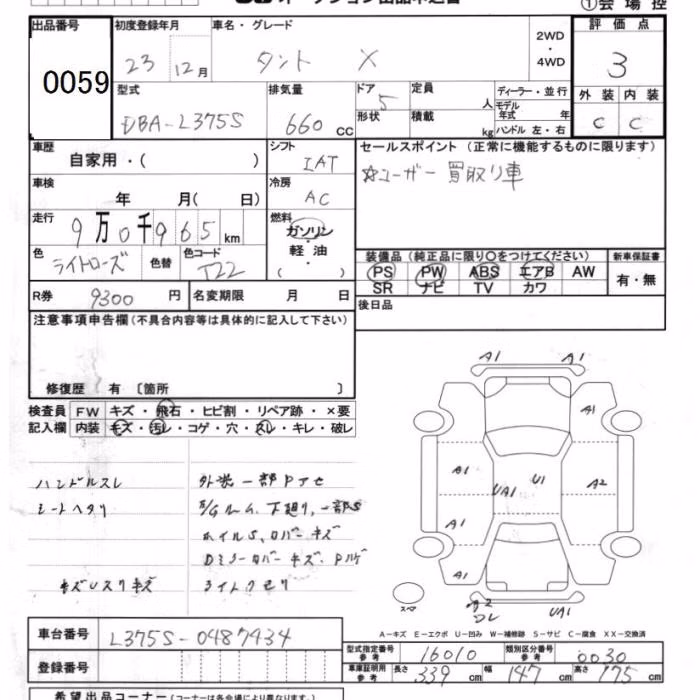 ①会場控
出品番号 初度登録年月 車名・グレード 2WD ・ 4WD 評価点
0059 23 12月 タント X 3
型式 排気量 ドア 定員 ディーラー・並行 外装 内装
DBA-L375S 660 CC 5 人 モデル年式 年 C C
形状 積載 kg ハンドル 左・右
車歴 シフト セールスポイント (正常に機能するものに限ります)
自家用・( ) IAT ☆ユーザー買取り車
車検 冷房
年 月( 日) AC
走行 燃料
9万0千965km ガソリン・軽油 ( )
色 色替 色コード 装備品 (純正品に限り○をつけてください) 新車保証書
ライトローズ T22 PS PW ABS エアB AW 有・無
SR ナビ TV カワ
R券 9300円 名変期限 月 日 後日品
注意事項申告欄 (不具合内容等は具体的に記入して下さい)
修復歴 有 〔箇所 〕
検査員 FW キズ・飛石・ヒビ割・リペア跡・×要
記入欄 内装 キズ・汚レ・コゲ・穴・スレ・キレ・破レ
ハンドルスレ 外装一部Pアセ
シートヘタリ 下廻り,一部S
ホイルS,カバーキズ
Dミラーカバーキズ Pハゲ
キズUスリキズ ライトクモリ
A1 A1
A1
A1 U1 A2
UA1
A1
A1
スペア A2 コレ UA1
A-キズ E-エクボ U-凹み W-補修跡 S-サビ C-腐食 XX-交換済
車台番号 L375S-0487434
型式指定番号 参考 16010 類別区分番号 参考 0030
登録番号 車庫証明用 参考 長さ 339cm 幅 147cm 高さ 175cm
希望出品コーナー (コーナーは各会場により異なります。)